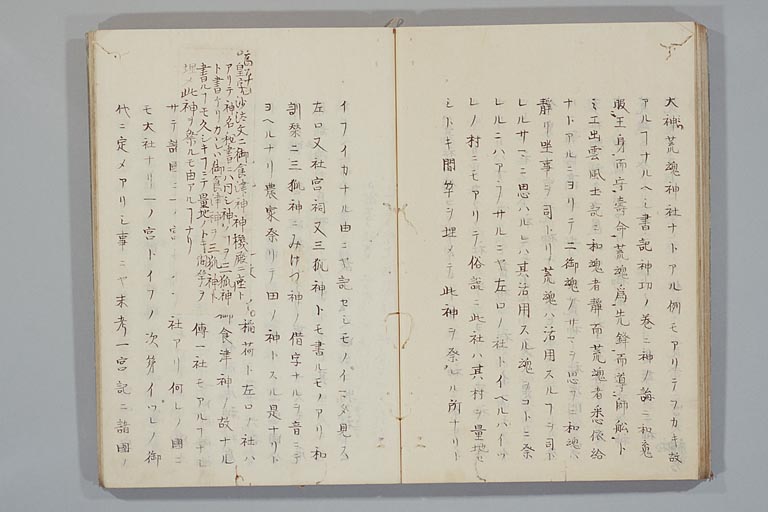 大神荒魂神社ナトアル例モアリテフカキ故
アルフナルヘシ書記神功ノ巻ニ神ノ誨ニ和魂
服王身而守壽命荒魂為先鋒而導師舩ト
ミエ出雲風土記ニ和魂者静而荒魂者悉依給
ナトアルニヨリテ二御魂ノサマヲ思フニ和魂ハ
静リ坐事ヲ司トリ荒魂ハ活用スルフヲ司ト
レルサマニ思ハルレハ其活用スル魂ヲコトニ祭
レルニハアラフサルニヤ左口ノ社トイヘルハイツ
レノ村ニモアリテ俗説ニ此社ハ其村ヲ量地
シトキ間竿ヲ埋メテ此神ヲ祭レル所ナリト
イフイカナル由ニヤ記セシモノイマタ見ス
左口又社宮祠又三狐神トモ書ルモノアリ和
訓栞ニ三狐神ハみけつ神ノ借字ナルヲ音ニテ
ヨヘルナリ農家祭リテ田ノ神トスル是ナリト
稲荷ト左口ノ社ハ
御食津神ノ故ナル
傳一社モアルフナレ
皇完沙汰文ニ御食津神神機殿ニ座ト
アリテ神名秘書ニハ同シ神ノフヲ三狐神
ト書タリカヽレハ御食津神ヲ三狐神ト
書ルフモ久シキフニテ量地ノトキ間竿ヲ
埋メ此神ヲ祭ルモ由アルフナリ
サテ諸国ニ一ノ宮 社アリ何レノ國ニ
モ大社ナリ一ノ宮トイフノ次第イツレノ御
代ニ定メアリシ事ニヤ未考一宮記ニ諸國ノ